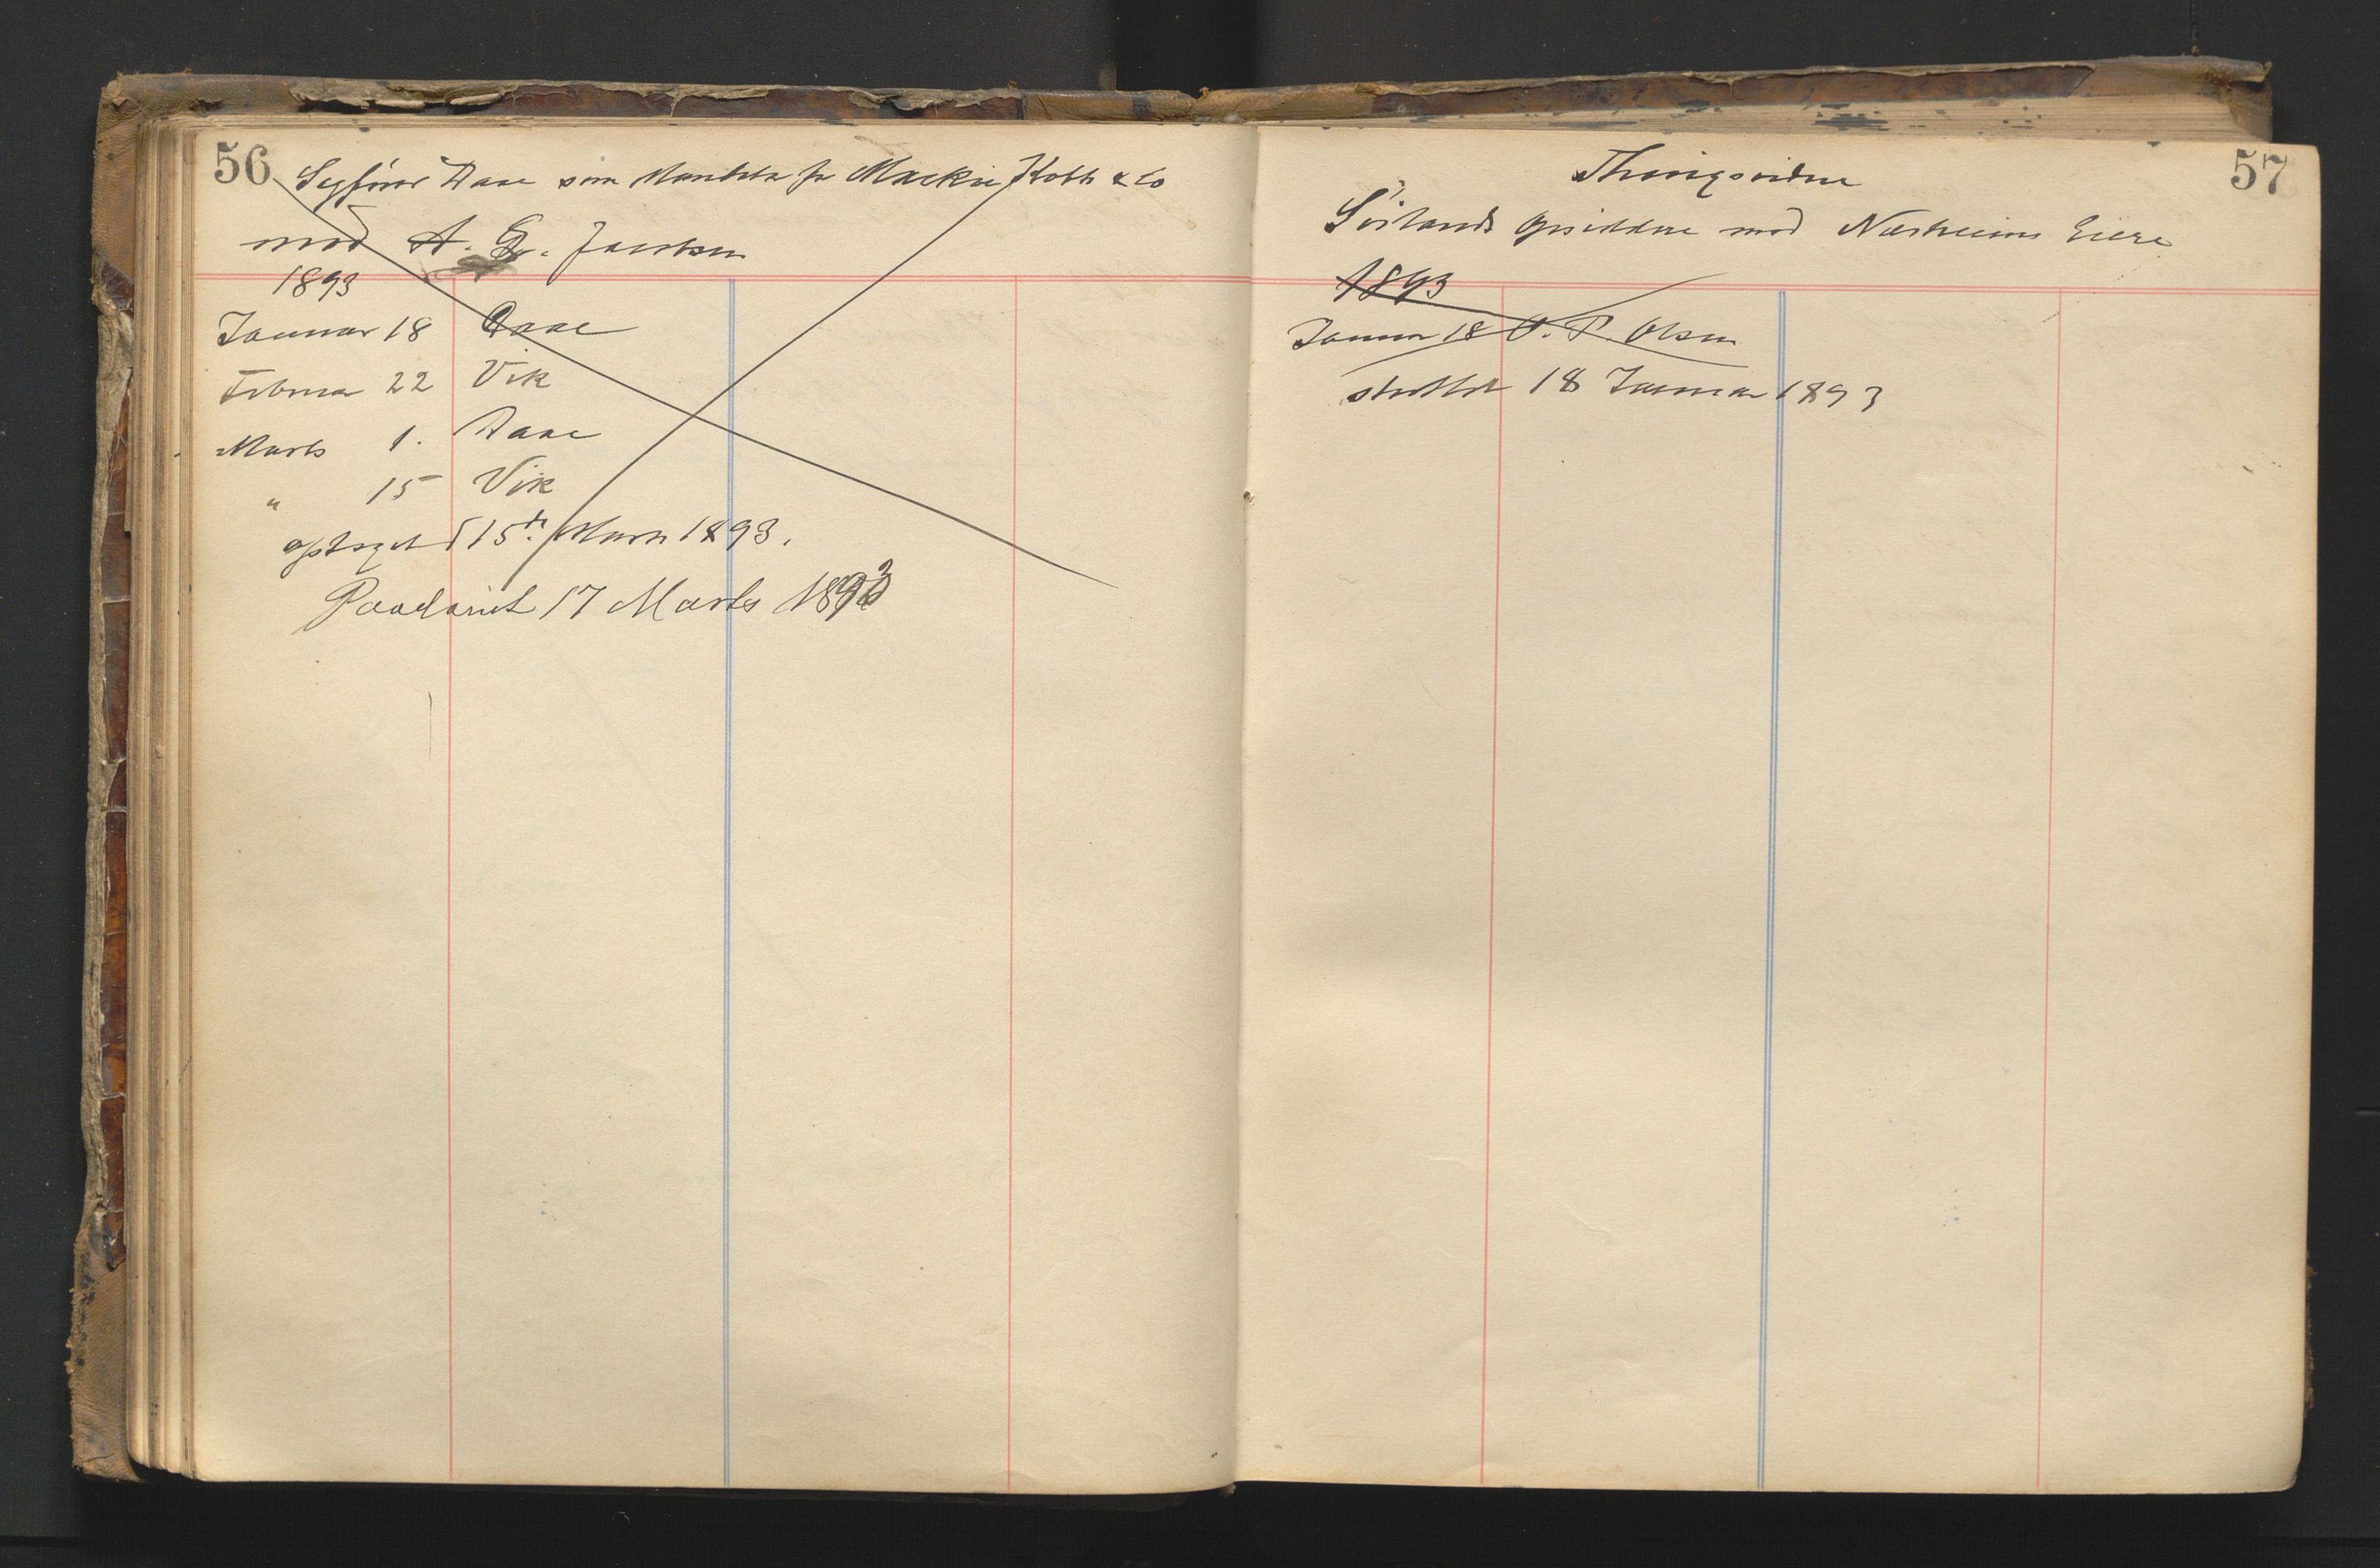 56
Sagfører Daae som Mandatar for Mackie Koth & Co
mod A. G. Jacobsen
1893
Januar 18 Daae
Februar 22 Vik
Marts 1. Daae
" 15 Vik
optaget d 15de Marts 1893.
Paadømt 17 Marts 1893
57
Thingsvidne
Sørlands Opsiddere mod Næsheims Eiere
1893
Januar 18 O. P. Olsen
sluttet 18 Januar 1893